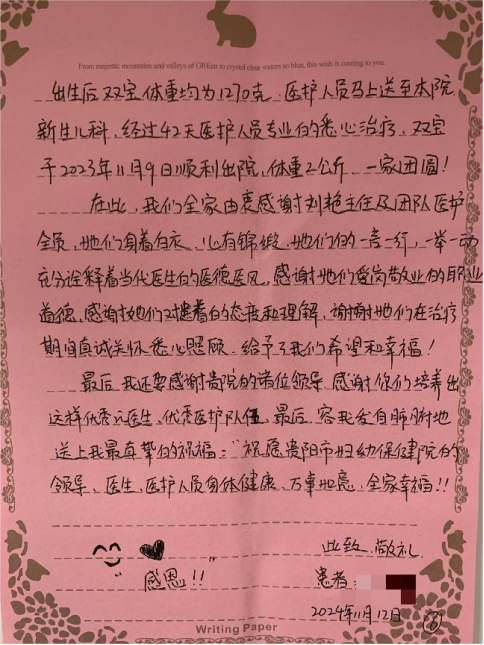 From majestic mountains and valleys of GREen to crystal clear waters so blue, this wish is coming to you.
出生后双宝体重均为1270克.医护人员马上送至本院
新生儿科,经过42天医护人员专业的悉心治疗,双宝
于2023年11月9日顺利出院,体重2公斤,一家团圆!
在此,我们全家由衷感谢刘艳主任及团队医护
全员,她们身着白衣,心有锦缎,她们的一言一行,一举一动
充分诠释着当代医生的医德医风,感谢她们爱岗敬业的职业
道德,感谢她们对患者的态度和理解,谢谢她们在治疗
期间真诚关怀悉心照顾,给予了我们希望和幸福!
最后,我还要感谢贵院的诸位领导,感谢你们培养出
这样优秀的医生,优秀医护队伍,最后,容我发自肺腑地
送上我最真挚的祝福:"祝愿贵阳市妇幼保健院的
领导、医生、医护人员身体健康、万事如意、全家幸福!!
"
感恩!!
此致 敬礼
患者:
2024年11月12日
6
Writing Paper